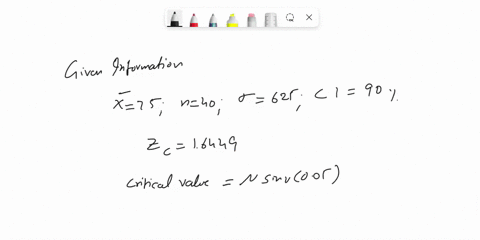 Given Information
x̄=75; n=40; σ=625; CI=90%.
Zc=1.6449
Critical value = Nsinv(0.05)